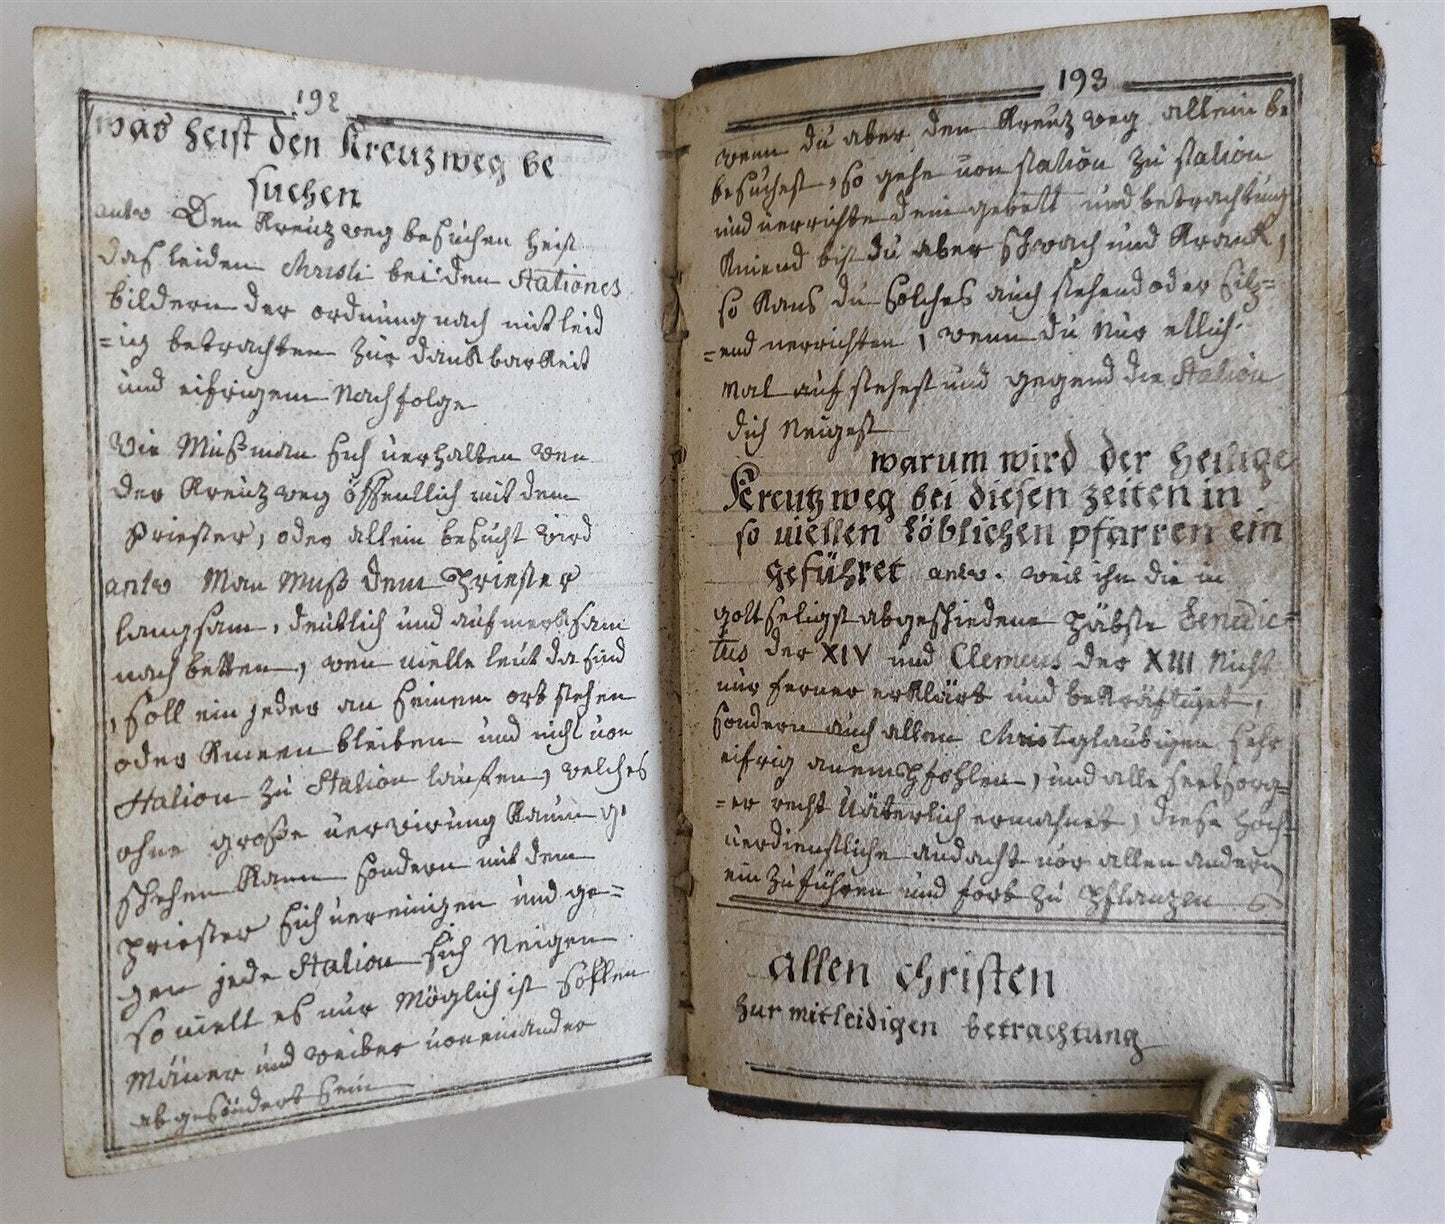 192
was heist den Kreuzweg be
suchen
antw Den Kreuzweg besuchen heist
das leiden Christi bei den Stationes
bildern der ordnung nach mitleid
=ig betrachten zur dankbarkeit
und eifrigem Nachfolge
Wie Muß man sich uerhalten wen
der Kreuzweg öffentlich mit dem
Priester, oder allein besucht wird
antw Man Muß dem Priester
langsam, deutlich und aufmerksam
nach betten, wen uielle leut da sind
, soll ein jeder an seinem ort stehen
oder knieen bleiben und nicht uon
Station zu Station lauffen, welches
ohne große uerwirung kaum ge
schehen kann sondern mit dem
Priester sich uereinigen und ge=
gen jede Station sich Neigen
so uiell es nur Möglich ist sollen
Mäner und weiber uoneinander
abgesöndert sein
193
wenn du aber den Kreuzweg allein be
besuchest, so gehe uon station zu station
und uerrichte dein gebett und betrachtung
Kniend bist du aber schwach und Krank,
so Kans du solches auch stehend oder sitz=
=end uerrichten, wenn du Nur etlich
Mal aufstehest und gegend die Station
dich Neigest
warum wird der Heilige
Kreutzweg bei diesen zeiten in
so uiellen löblichen pfarren ein
geführet antw. weil ihn die in
gott seligst abgeschiedene Päbste Benedic=
tus der XIV und Clemens der XIII Nicht
nur ferner erklärt und bekräftiget,
sondern auch allen Christglaubigen sehr
eifrig anempfohlen, und alle seelsorg=
=er recht Uäterlich ermahnet, diese hoch=
uerdienstliche andacht uor allen andern
ein zu führen und fort zu pflanzen
allen Christen
zur mitleidigen betrachtung